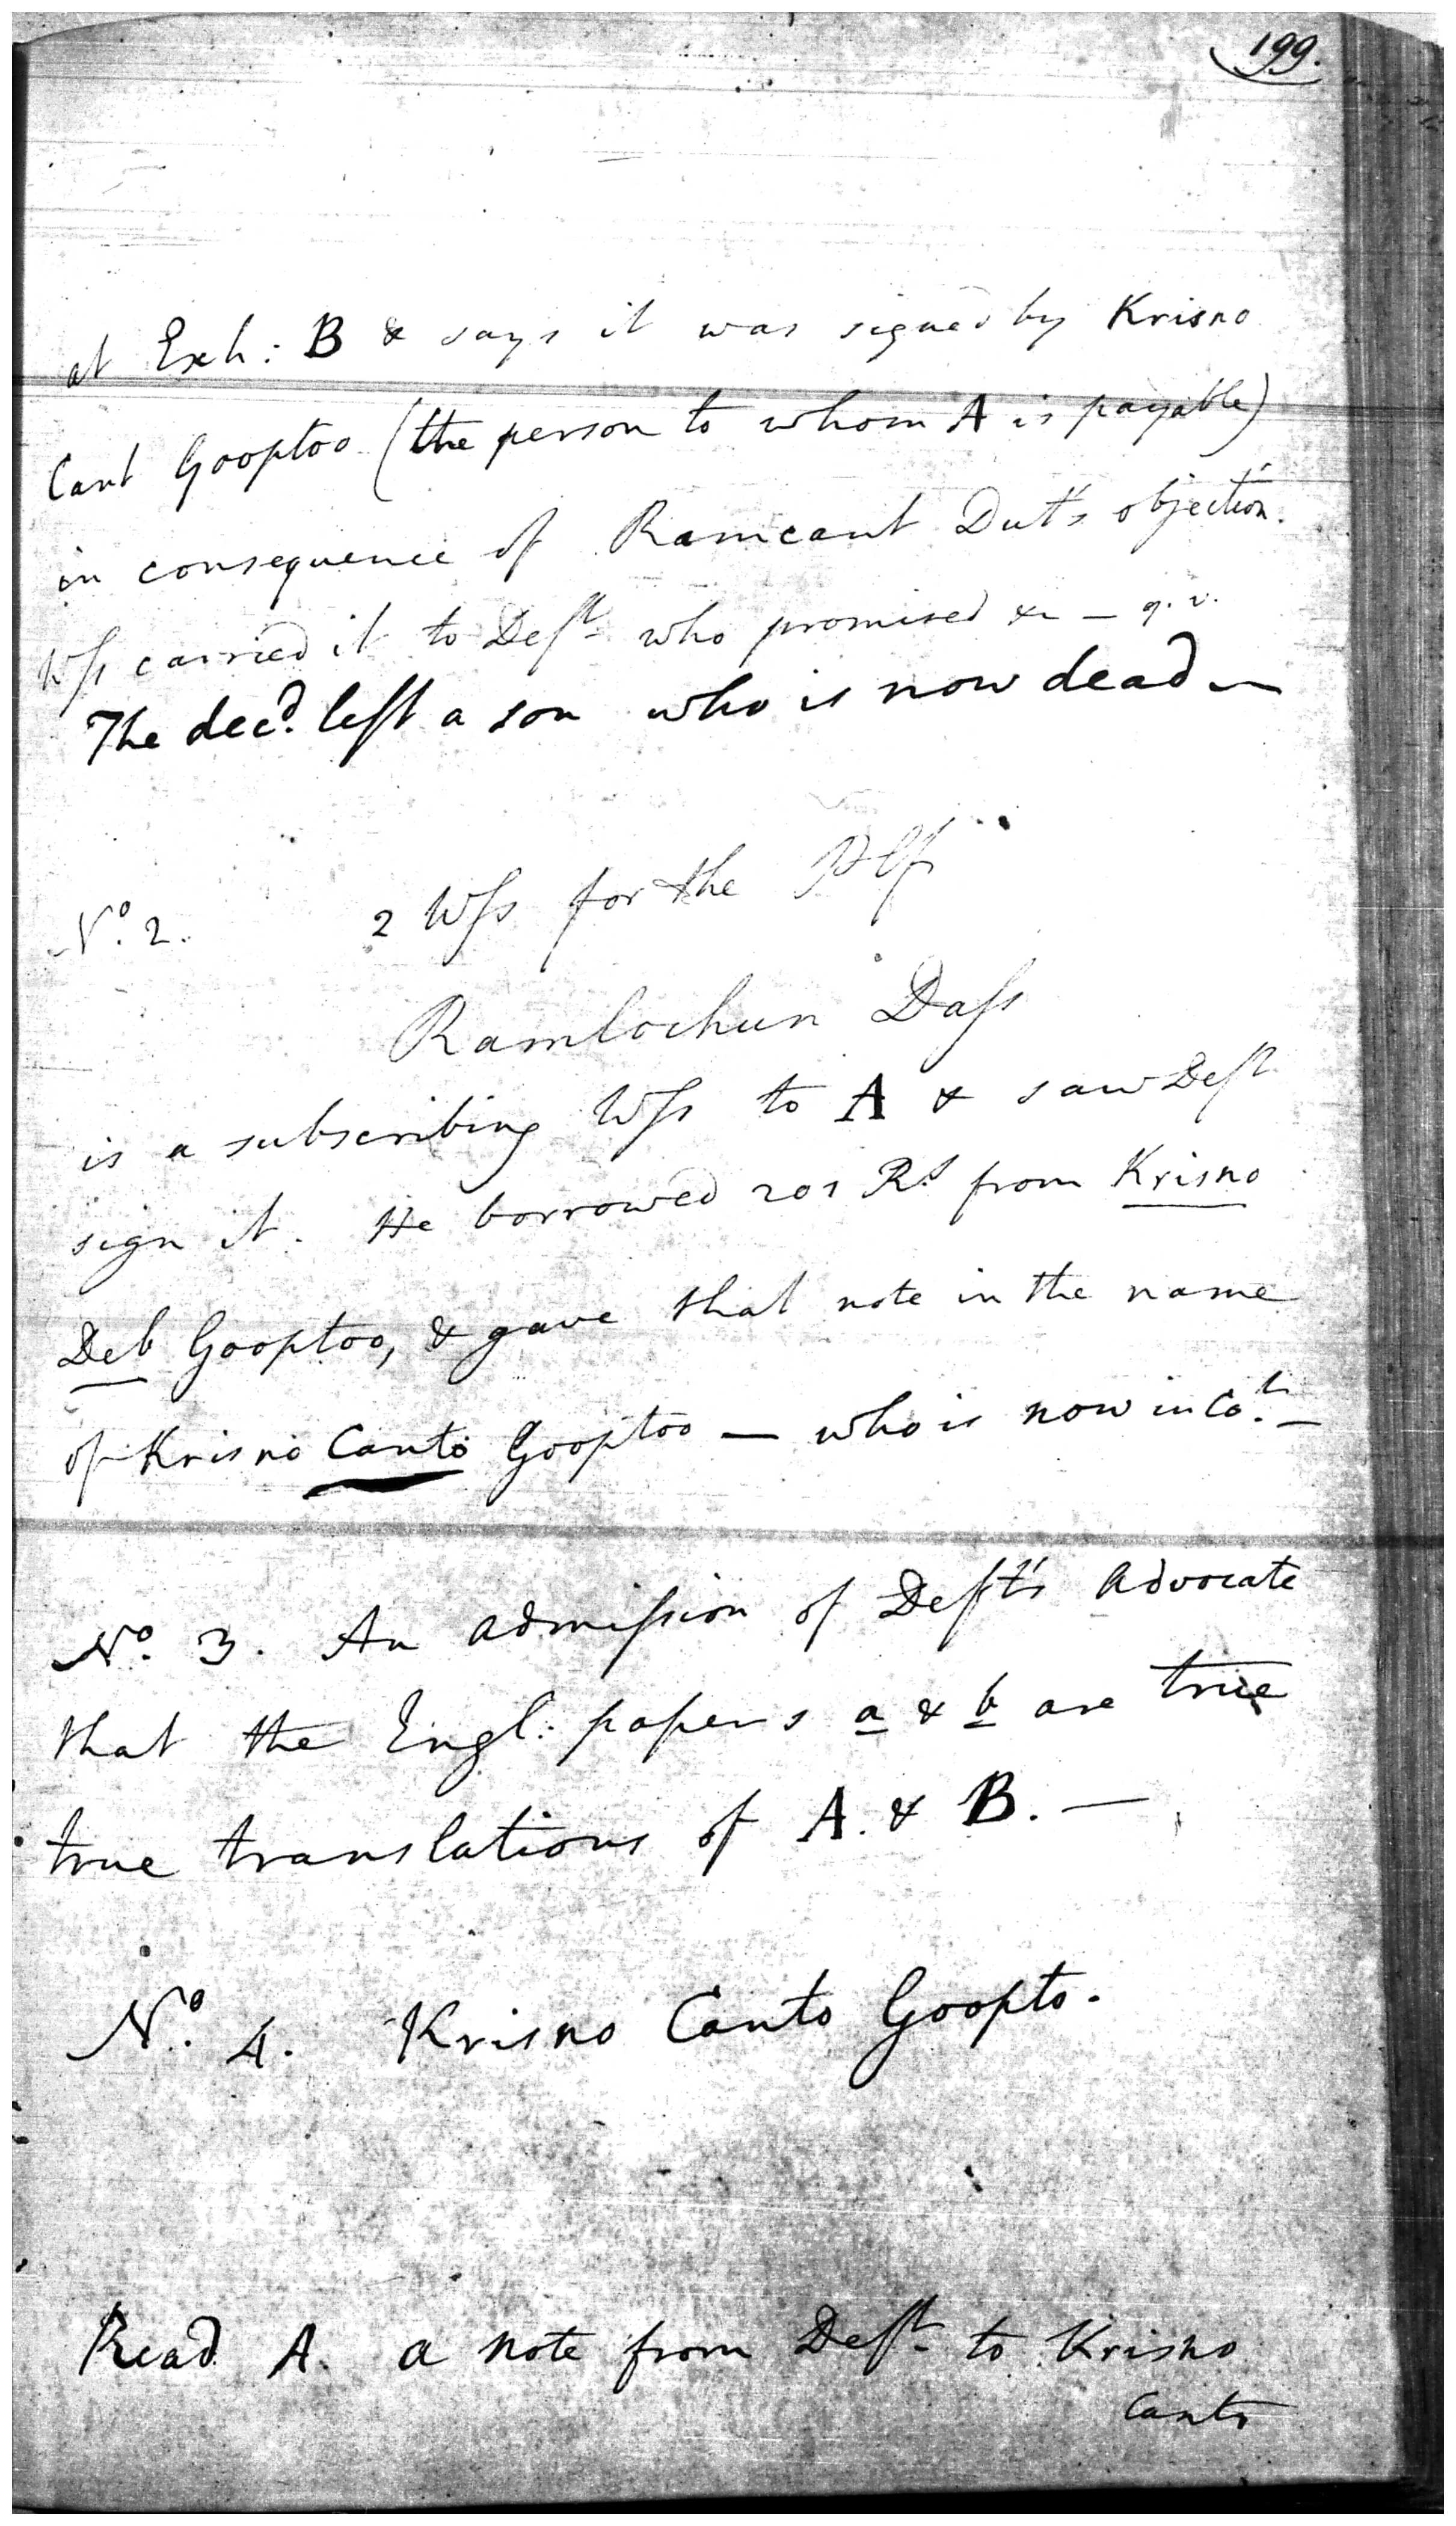 199.
at Exh: B & says it was signed by Krisno
Cant Gooptoo (the person to whom A is payable)
in consequence of Ramcant Dutt's objectiōn.
Wſs carried it to Defᵗ who promised &c — q.v.
The decᵈ. left a son who is now dead —
Nº. 2. 2 Wſs for the Plf
Ramlochun Daſs
is a subscribing Wſs to A & saw Deft
sign it. He borrowed 201 Rˢ from Krisno
Deb Gooptoo, & gave that note in the name
of Krisno Canto Gooptoo — who is now in Coᵗ. —
Nº. 3. An admiſsion of Deft's Advocate
that the Engl: papers a & b are true
true translations of A. & B. —
Nº. 4. Krisno Canto Goopto.
Read A. a note from Defᵗ to Krisno
Canto